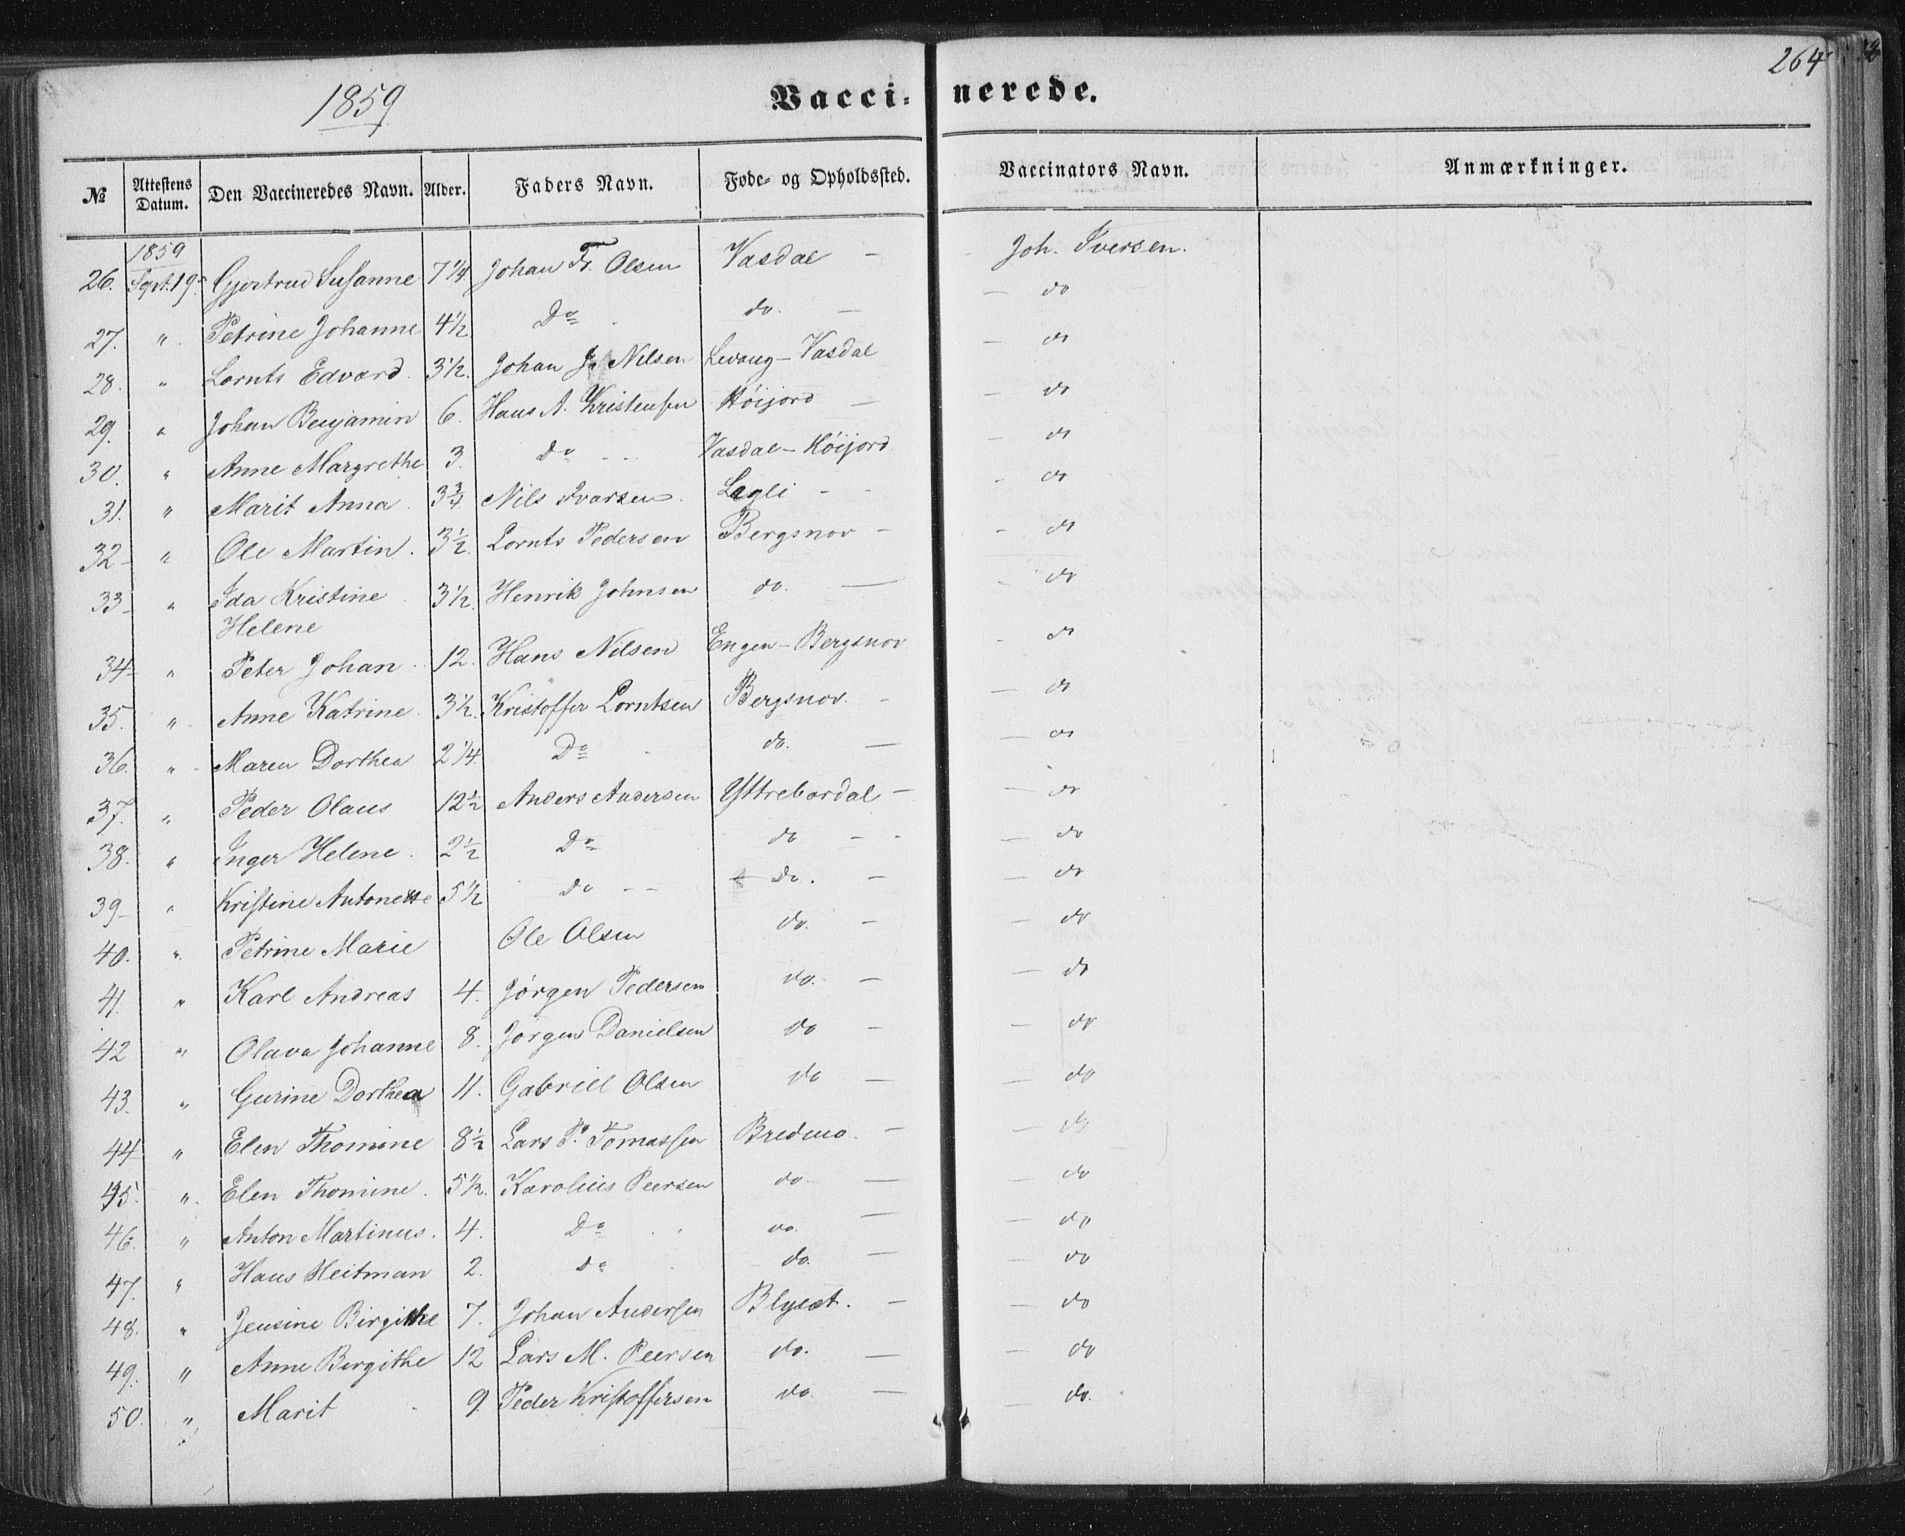 264
1859
Vacci- nerede.
№ Attestens Datum. Den Vaccineredes Navn. Alder. Faders Navn. Føde- og Opholdssted. Vaccinators Navn. Anmærkninger.
1859
26. Sept. 19. Gjertrud Susanne 7 1/4 Johan Fr. Olsen Vasdal — Joh. Iversen.
27. " Petrine Johanne 4 1/2 Do do. — — do
28. " Lornts Edvard. 3 1/2. Johan J. Nilsen Levang - Vasdal — do
29. " Johan Benjamin 6. Hans A. Kristensen Höijord — — do
30. " Anne Margrethe 3. Do Vasdal - Höijord — do
31. " Marit Anna. 3 3/4 Nils Ivarsen. Legli - - - do
32 " Ole Martin. 3 1/2. Lornts Pedersen Bergsnov - - do
33 " Ida Kristine 3 1/2. Henrik Johnsen do. — - do
Helene
34 " Peter Johan. 12. Hans Nilsen Engen - Bergsnov - do
35. " Anne Katrine. 3 1/2. Kristoffer Lorntsen Bergsnov. - — do
36. " Maren Dorthea 2 1/4. Do do. — — do
37. " Peder Olaus 12 1/2 Anders Andersen Yttrebordal — — do
38. " Inger Helene. 2 1/2 Do do - - — do
39 " Kristine Antonette 5 1/2 do - - do. - — do
40. " Petrine Marie Ole Olsen do. - — do
41. " Karl Andreas 4. Jørgen Pedersen do. - — do
42 " Olava Johanne 8. Jørgen Danielsen do - — do
43. " Gurine Dorthea 11. Gabriel Olsen do — — do
44 " Elen Thomine 8 1/2 Lars P. Tomassen Bredmo. - — do
45. " Elen Thomine. 5 1/2. Karolius Peersen do. — — do
46. " Anton Martinus. 4. Do do. — — do
47. " Hans Heitman 2. do do. — — do
48. " Jensine Birgithe 7. Johan Andersen Blysæt. - — do
49. " Anne Birgithe 12 Lars M. Peersen do. — — do
50. " Marit 9. Peder Kristoffersen do. — — do.